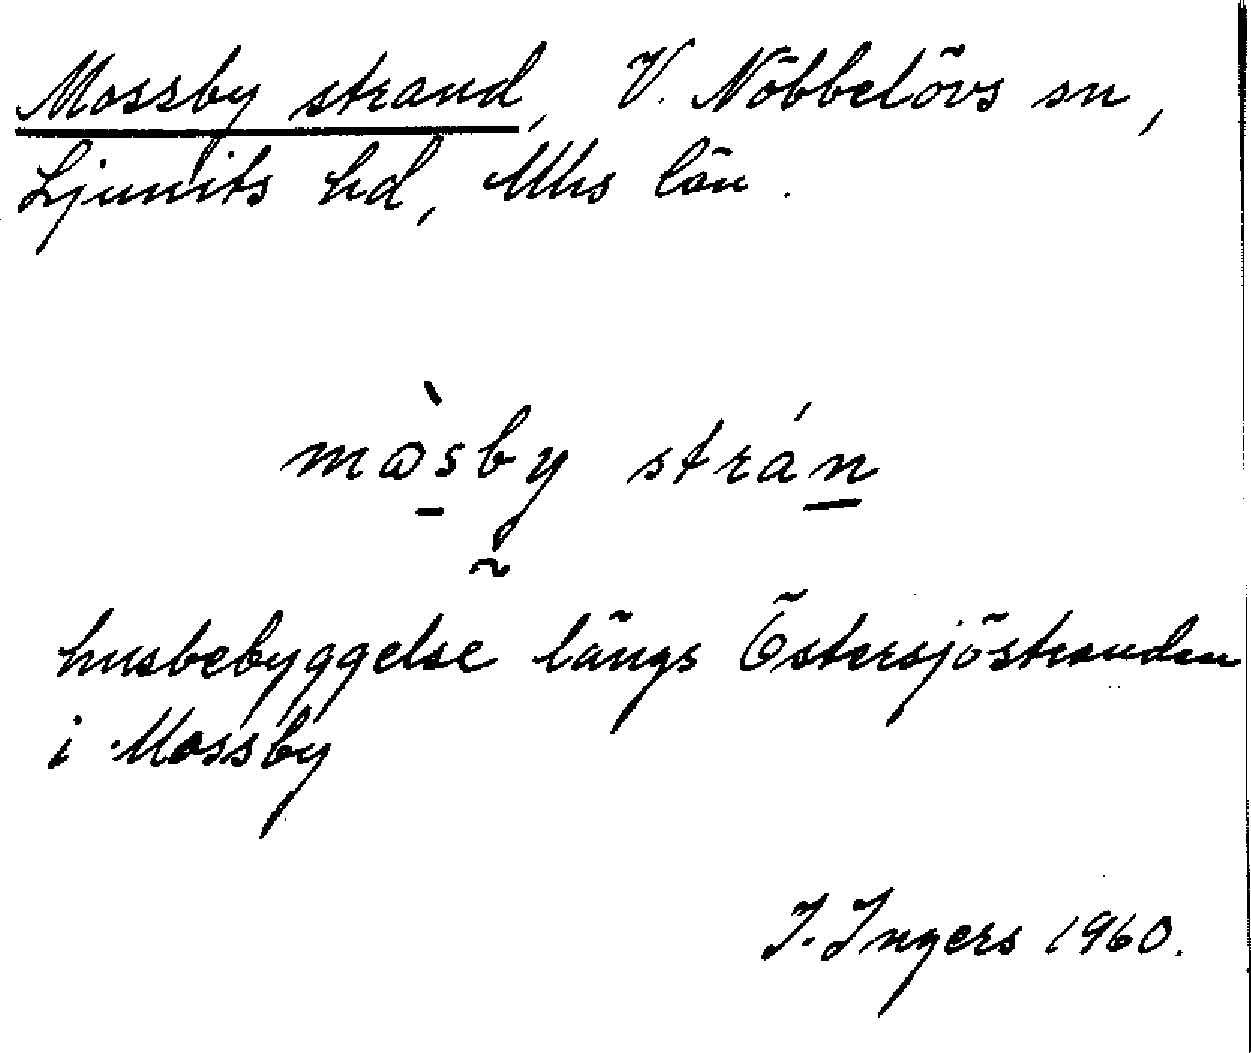 Mossby strand, V. Nöbbelövs sn,
Ljunits hd, Mhs län.
màsby strán
husbebyggelse längs Östersjöstranden
i Mossby
I. Ingers 1960.